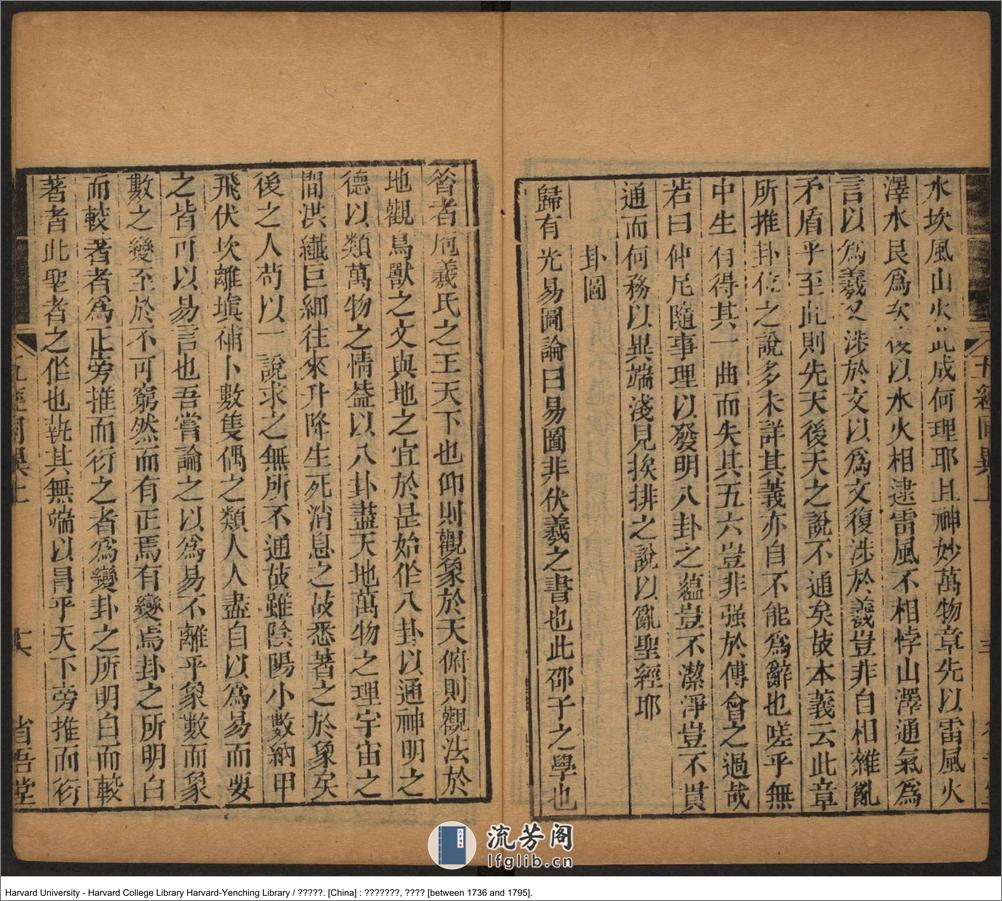 水坎風山火此成何理耶且神妙萬物章先以雷風火
澤水艮爲次後以水火相逮雷風不相悖山澤通氣爲
言以爲羲又涉於文以爲文復涉於羲豈非自相雜亂
矛盾乎至此則先天後天之說不通矣故本義云此章
所推卦位之說多未詳其義亦自不能爲辭也嗟乎無
中生有得其一曲而失其五六豈非強於傅會之過哉
若曰仲尼隨事理以發明八卦之蘊豈不潔淨豈不貫
通而何務以異端淺見挨排之說以亂聖經耶
卦圖
歸有光易圖論曰易圖非伏羲之書也此邵子之學也
五經同異上
昔者庖羲氏之王天下也仰則觀象於天俯則觀法於
地觀鳥獸之文與地之宜於是始作八卦以通神明之
德以類萬物之情葢以八卦盡天地萬物之理宇宙之
間洪纖巨細往來升降生死消息之故悉著之於象矣
後之人苟以一說求之無所不通故雖陰陽小數納甲
飛伏坎離塡補卜數隻偶之類人人盡自以爲易而要
之皆可以易言也吾嘗論之以爲易不離乎象數而象
數之變至於不可窮然而有正焉有變焉卦之所明白
而較著者爲正旁推而衍之者爲變卦之所明白而較
著者此聖者之作也執其無端以冒乎天下旁推而衍
五經同異上
省吾堂
流芳阁
lfglib.cn
Harvard University - Harvard College Library Harvard-Yenching Library / ?????. [China] : ???????, ???? [between 1736 and 1795].